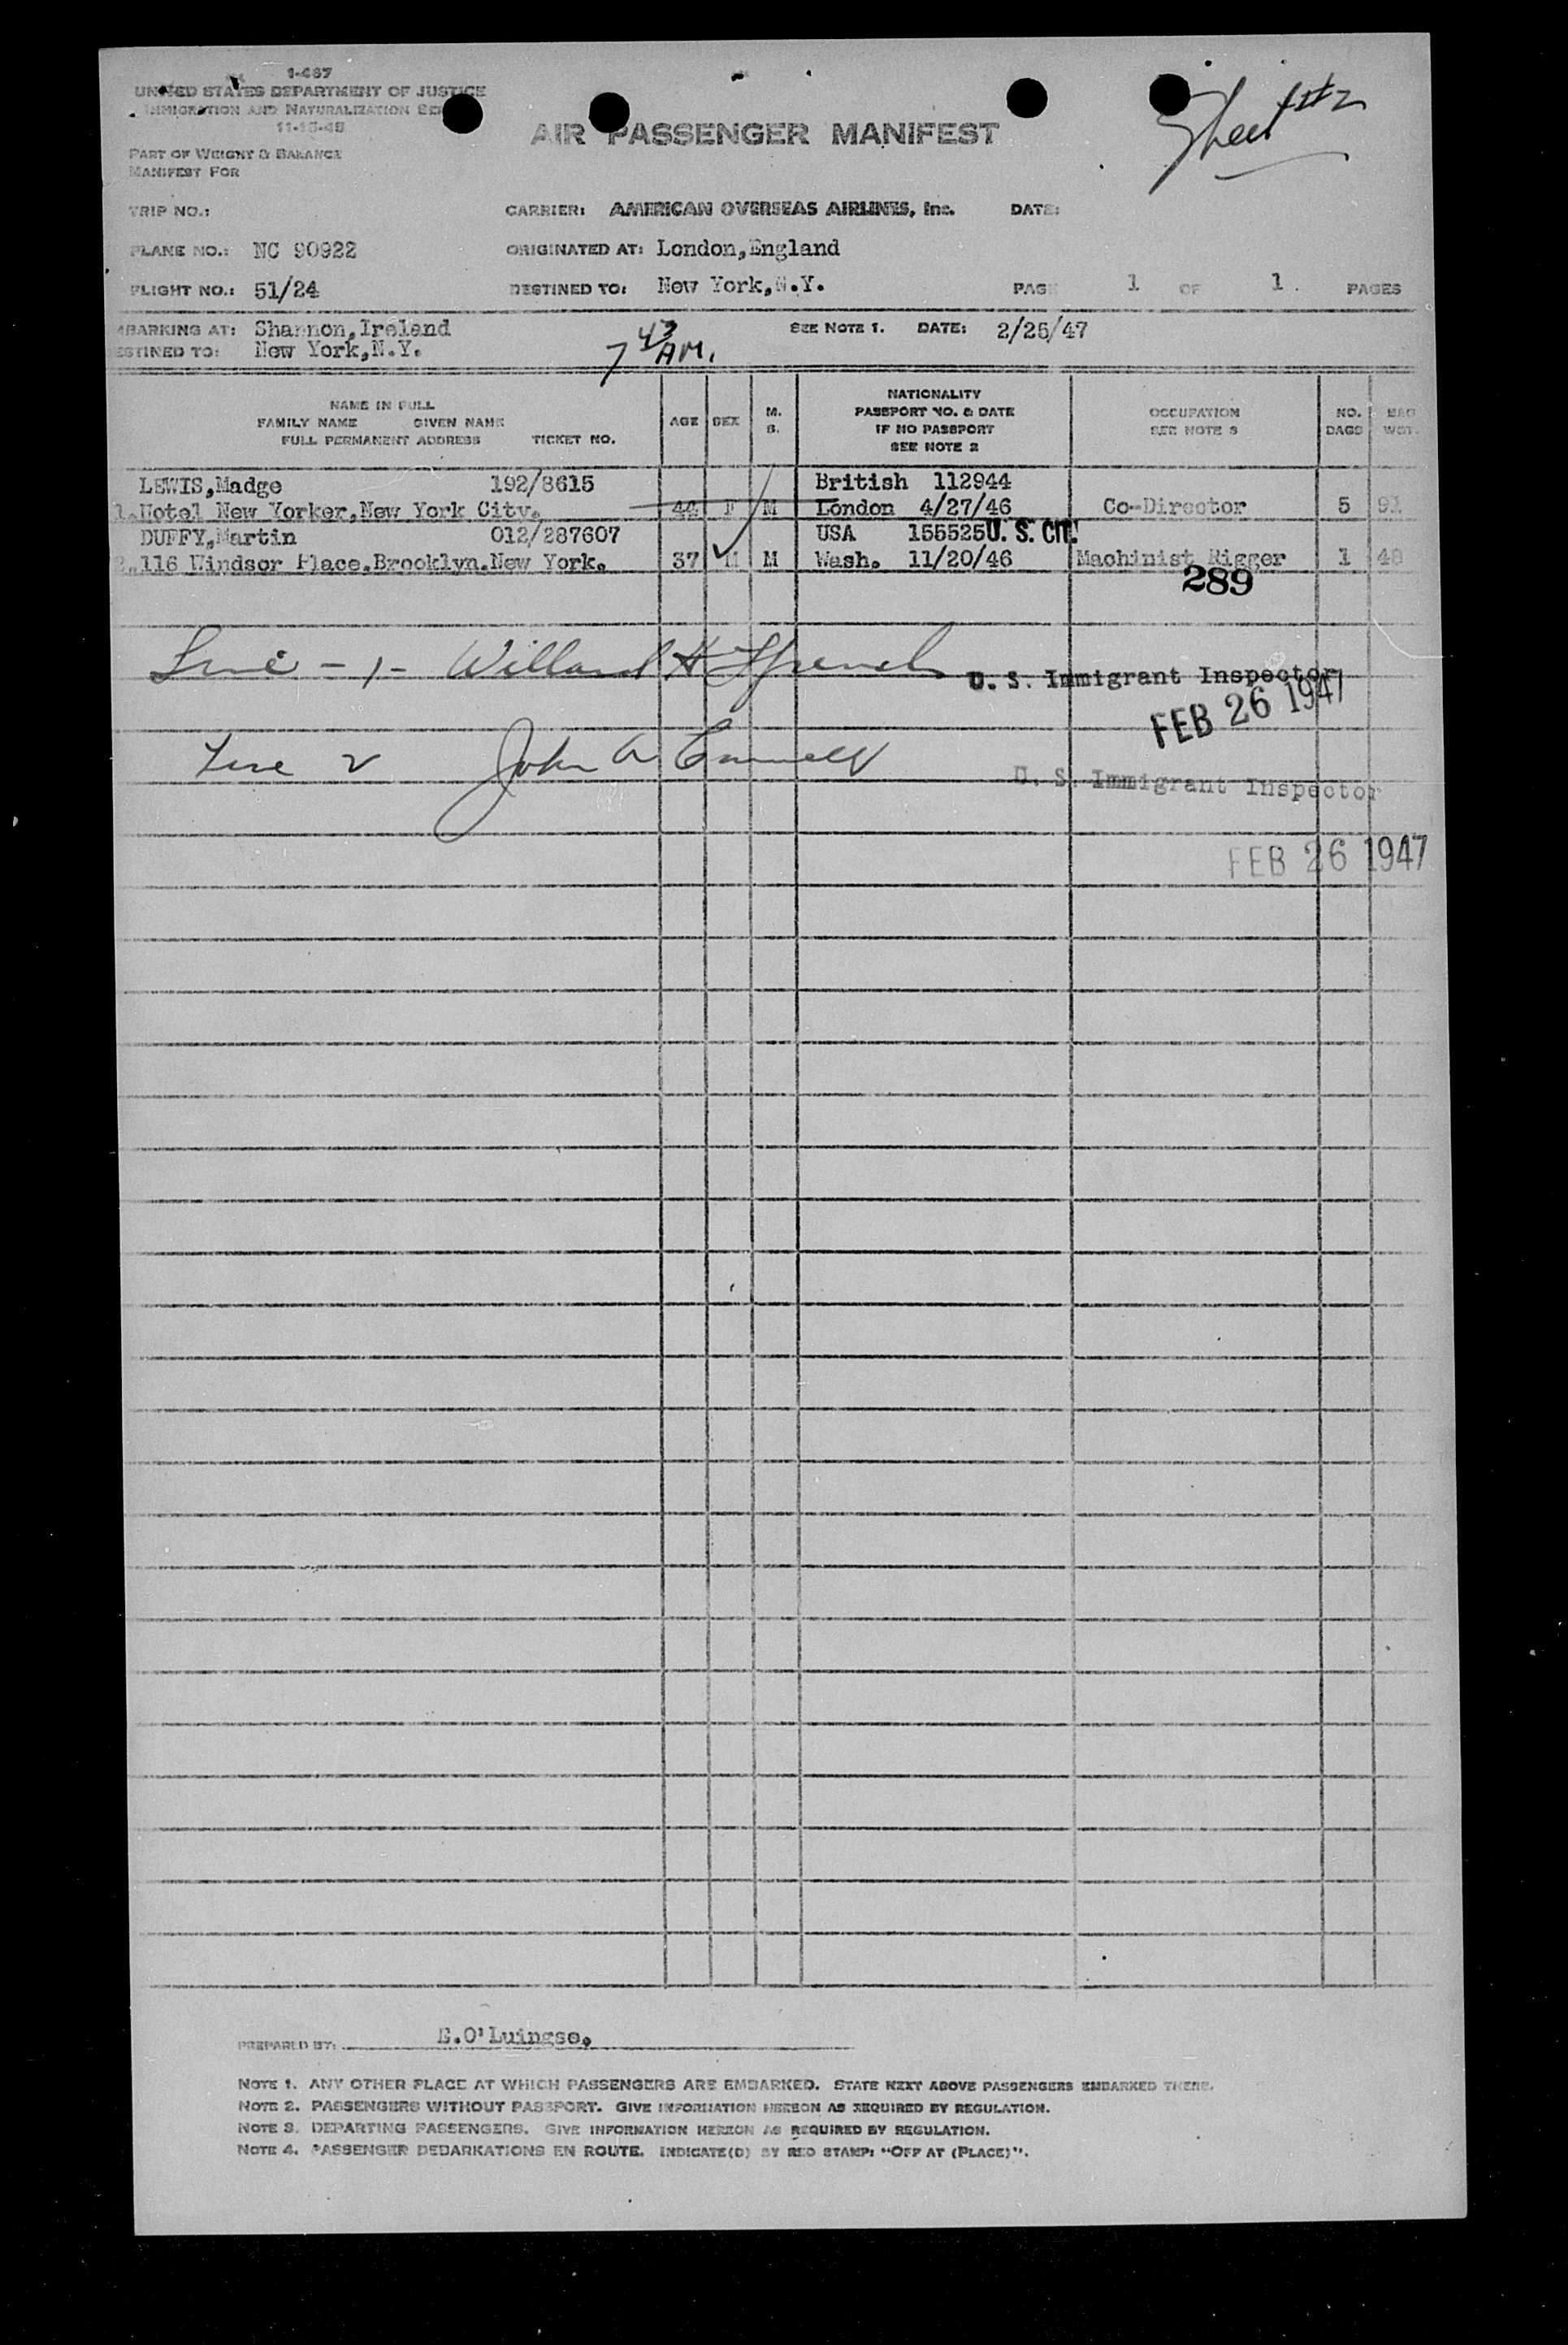 1-467
UNITED STATES DEPARTMENT OF JUSTICE
IMMIGRATION AND NATURALIZATION SER
11-15-45
AIR PASSENGER MANIFEST
Sheet #2
PART OF WEIGHT & BALANCE
MANIFEST FOR
TRIP NO.: CARRIER: AMERICAN OVERSEAS AIRLINES, Inc. DATE:
PLANE NO.: NC 90922 ORIGINATED AT: London,England
FLIGHT NO.: 51/24 DESTINED TO: New York,N.Y. PAGE 1 OF 1. PAGES
MBARKING AT: Shannon,Ireland SEE NOTE 1. DATE: 2/25/47
ESTINED TO: New York,N.Y. 7 43 AM.
NAME IN FULL
FAMILY NAME GIVEN NAME
FULL PERMANENT ADDRESS TICKET NO.
AGE SEX M. S.
NATIONALITY
PASSPORT NO. & DATE
IF NO PASSPORT
SEE NOTE 2
OCCUPATION
SEE NOTE 3
NO. BAGS
BAG WGT.
LEWIS,Madge 192/8615 British 112944
1.Hotel New Yorker,New York City. 44 F M London 4/27/46 Co-Director 5 91
DUFFY,Martin 012/287607 USA 155525 U. S. CIT.
2.116 Windsor Place.Brooklyn.New York. 37 M M Wash. 11/20/46 Machinist Rigger 1 48
289
Line - 1 - Willard H French U. S. Immigrant Inspector
FEB 26 1947
Line 2 John A
U. S. Immigrant Inspector
FEB 26 1947
PREPARED BY: E.O'Luingso.
NOTE 1. ANY OTHER PLACE AT WHICH PASSENGERS ARE EMBARKED. STATE NEXT ABOVE PASSENGERS EMBARKED THERE.
NOTE 2. PASSENGERS WITHOUT PASSPORT. GIVE INFORMATION HEREON AS REQUIRED BY REGULATION.
NOTE 3. DEPARTING PASSENGERS. GIVE INFORMATION HEREON AS REQUIRED BY REGULATION.
NOTE 4. PASSENGER DEBARKATIONS EN ROUTE. INDICATE(D) BY RED STAMP: "OFF AT (PLACE)".